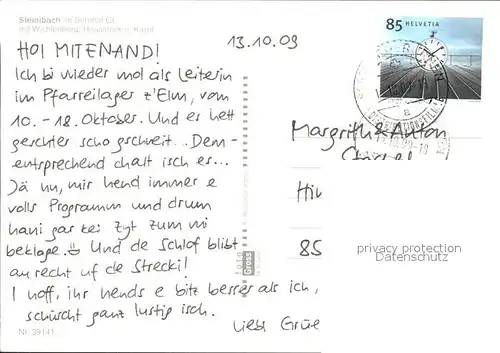 Steinibach im Sernftal GL
mit Wichlenberg, Hausstock u. Kärpf
13.10.09
85 HELVETIA
HOI MITENAND!
Ich bi wieder mol als Leiterin
im Pfarreilager z'Elm, vom
10. - 18. Oktober. Und es hett
geschter scho gschneit... Dem-
entsprechend chalt isch es...
Jä nu, mir hend immer e
volls Programm und drum
hani gar kei Zyt zum mi
beklage. Und de Schlof blibt
au recht uf de Strecki!
I hoff, ihr hends e bitz besser als ich,
süscht ganz lustig isch.
Liebi Grüe
Margrith & Anton
85
privacy protection
Datenschutz
foto
Gross
Nr. 39141